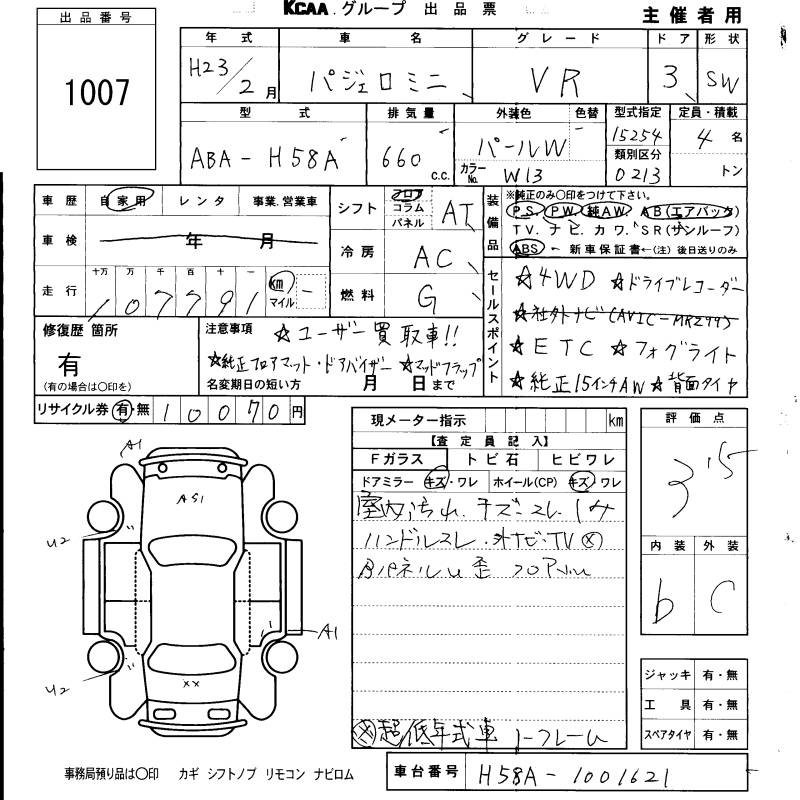 KCAA.グループ 出品票
主催者用
出品番号
1007
年式 車名 グレード ドア 形状
H23/2月 パジェロミニ VR 3 SW
型式 排気量 外装色 色替 型式指定 定員・積載
ABA-H58A 660c.c. パールW - 15254 4名
カラーNo. W13 類別区分 0213 トン
車歴 自家用 レンタ 事業.営業車
車検 年 月
十万 万 千 百 十 一
走行 107791 km マイル -
シフト フロア コラム パネル AT
冷房 AC
燃料 G
装備品 ※純正のみ○印をつけて下さい。
P.S. P.W. 純AW. AB(エアバック)
T.V. ナビ. カワ. S.R(サンルーフ)
ABS - 新車保証書←(注)後日送りのみ
セールスポイント
☆4WD ☆ドライブレコーダー
☆社外ナビ(AVIC-MRZ99)
☆ETC ☆フォグライト
☆純正15インチAW ☆背面タイヤ
修復歴 箇所
有
(有の場合は○印を)
注意事項 ☆ユーザー買取車!!
☆純正フロアマット・ドアバイザー ☆マッドフラップ
名変期日の短い方 月 日まで
リサイクル券 有・無 10070円
現メーター指示 km
【査定員記入】
Fガラス トビ石 ヒビワレ
ドアミラー キズ・ワレ ホイール(CP) キズ・ワレ
室内汚れ.キズ・スレ.シミ
ハンドルスレ・外ナビ・TV
BパネルU歪
超/低年式車
評価点
3.5
内装 外装
b C
A1
AS1
U2
A1
U2
××
ジャッキ 有・無
工具 有・無
スペアタイヤ 有・無
事務局預り品は○印 カギ シフトノブ リモコン ナビロム
車台番号 H58A-1001621